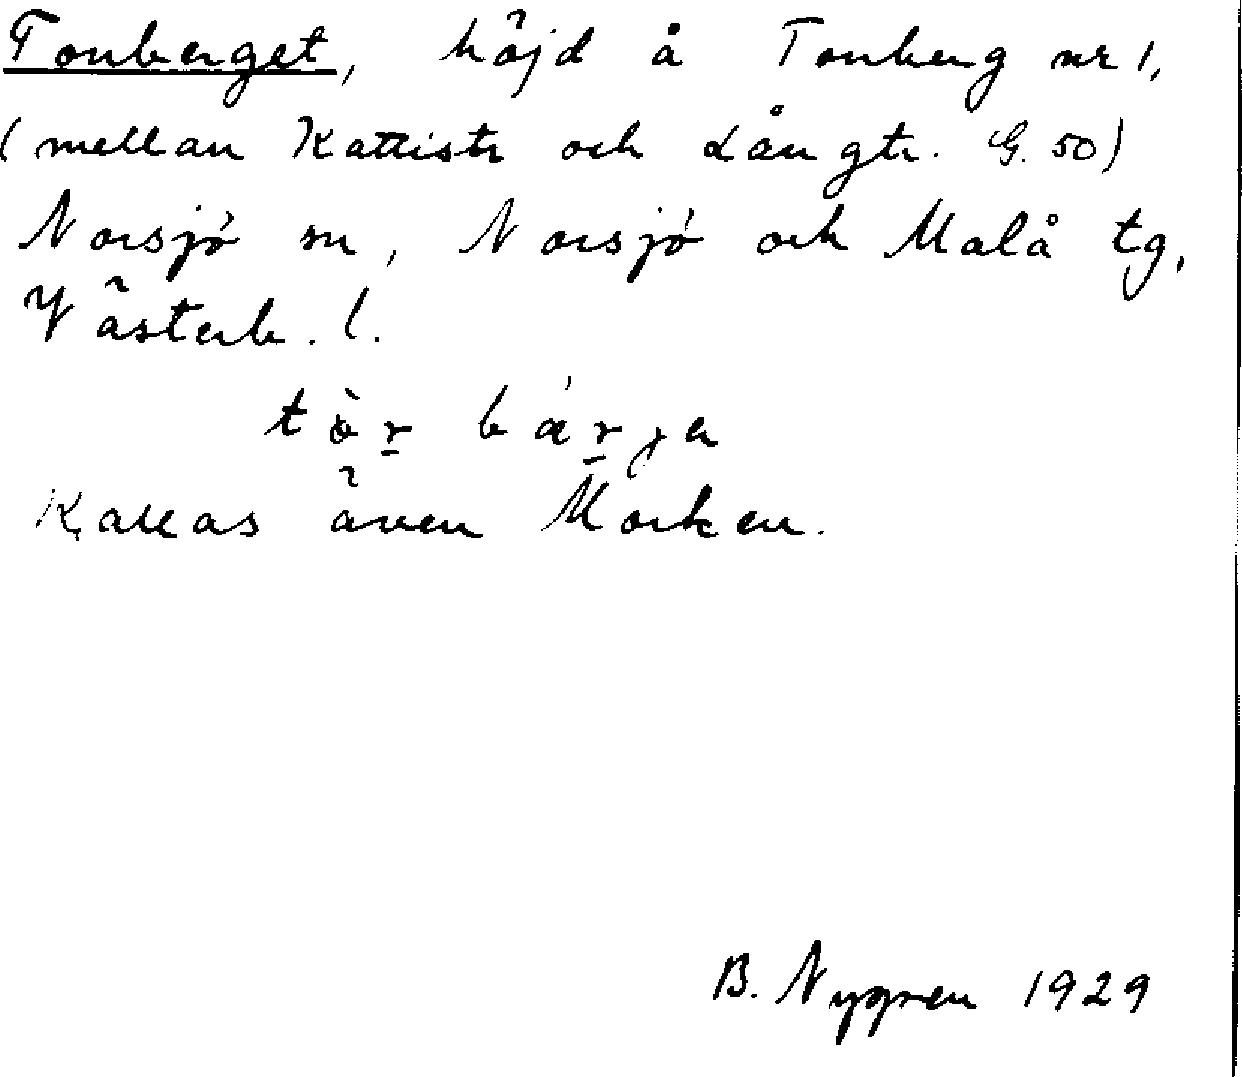 Torrberget, höjd å Torrberg nr 1,
(mellan Kattistr och Långtr. G. 50)
Norsjö sn, Norsjö och Malå tg,
Västerb. l.
Kallas även Morken.
B. Nygren 1929